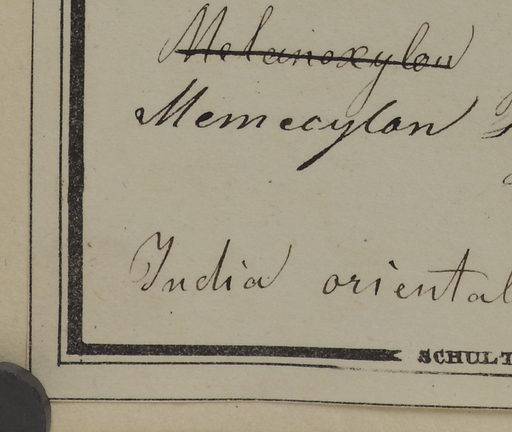 Melanoxylon
Memecylon
India oriental
SCHULT